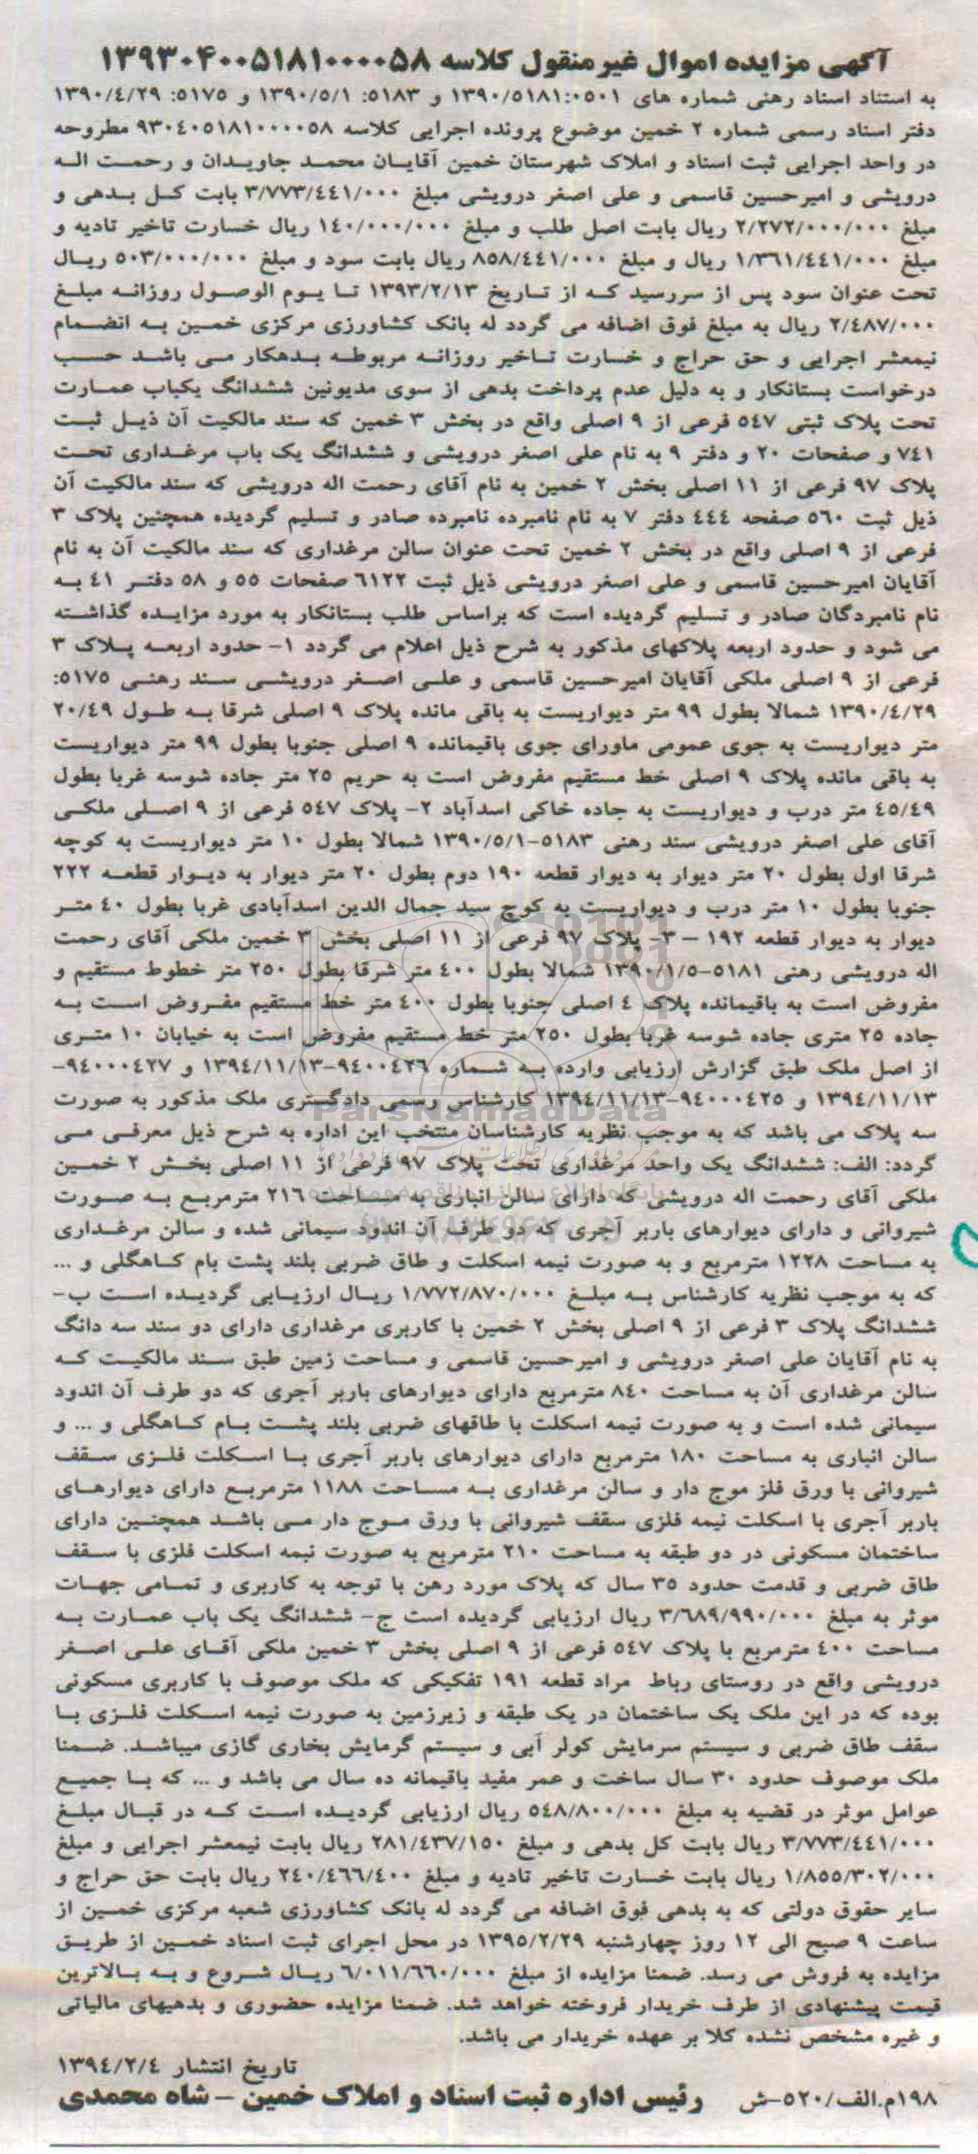 آگهی مزایده اموال غیرمنقول کلاسه ۱۳۹۳۰۴۰۰۵۱۸۱۰۰۰۰۵۸
به استناد اسناد رهنی شماره های ۱۳۹۰/۵۱۸۱:۰۵۰۱ و ۵۱۸۳: ۱۳۹۰/۵/۱ و ۵۱۷۵: ۱۳۹۰/٤/۲۹
دفتر اسناد رسمی شماره ۲ خمین موضوع پرونده اجرایی کلاسه ۹۳۰٤۰۵۱۸۱۰۰۰۰۵۸ مطروحه
در واحد اجرایی ثبت اسناد و املاک شهرستان خمین آقایان محمد جاویدان و رحمت اله
درویشی و امیرحسین قاسمی و علی اصغر درویشی مبلغ ۳/۷۷۳/٤٤۱/۰۰۰ بابت کل بدهی و
مبلغ ۲/۲۷۲/۰۰۰/۰۰۰ ریال بابت اصل طلب و مبلغ ۱٤۰/۰۰۰/۰۰۰ ریال خسارت تاخیر تادیه و
مبلغ ۱/۳٦۱/٤٤۱/۰۰۰ ریال و مبلغ ۸۵۸/٤٤۱/۰۰۰ ریال بابت سود و مبلغ ۵۰۳/۰۰۰/۰۰۰ ریال
تحت عنوان سود پس از سررسید که از تاریخ ۱۳۹۳/۲/۱۳ تا یوم الوصول روزانه مبلغ
۲/٤۸۷/۰۰۰ ریال به مبلغ فوق اضافه می گردد له بانک کشاورزی مرکزی خمین به انضمام
نیمعشر اجرایی و حق حراج و خسارت تاخیر روزانه مربوطه بدهکار می باشد حسب
درخواست بستانکار و به دلیل عدم پرداخت بدهی از سوی مدیونین ششدانگ یکباب عمارت
تحت پلاک ثبتی ۵٤۷ فرعی از ۹ اصلی واقع در بخش ۳ خمین که سند مالکیت آن ذیل ثبت
۷٤۱ و صفحات ۲۰ و دفتر ۹ به نام علی اصغر درویشی و ششدانگ یک باب مرغداری تحت
پلاک ۹۷ فرعی از ۱۱ اصلی بخش ۲ خمین به نام آقای رحمت اله درویشی که سند مالکیت آن
ذیل ثبت ۵٦۰ صفحه ٤٤٤ دفتر ۷ به نام نامبرده نامبرده صادر و تسلیم گردیده همچنین پلاک ۳
فرعی از ۹ اصلی واقع در بخش ۲ خمین تحت عنوان سالن مرغداری که سند مالکیت آن به نام
آقایان امیرحسین قاسمی و علی اصغر درویشی ذیل ثبت ٦۱۲۲ صفحات ۵۵ و ۵۸ دفتر ٤۱ به
نام نامبردگان صادر و تسلیم گردیده است که براساس طلب بستانکار به مورد مزایده گذاشته
می شود و حدود اربعه پلاکهای مذکور به شرح ذیل اعلام می گردد ۱- حدود اربعه پلاک ۳
فرعی از ۹ اصلی ملکی آقایان امیرحسین قاسمی و علی اصغر درویشی سند رهنی ۵۱۷۵:
۱۳۹۰/٤/۲۹ شمالا بطول ۹۹ متر دیواریست به باقی مانده پلاک ۹ اصلی شرقا به طول ۲۰/٤۹
متر دیواریست به جوی عمومی ماورای جوی باقیمانده ۹ اصلی جنوبا بطول ۹۹ متر دیواریست
به باقی مانده پلاک ۹ اصلی خط مستقیم مفروض است به حریم ۲۵ متر جاده شوسه غربا بطول
٤۵/٤۹ متر درب و دیواریست به جاده خاکی اسدآباد ۲- پلاک ۵٤۷ فرعی از ۹ اصلی ملکی
آقای علی اصغر درویشی سند رهنی ۵۱۸۳-۱۳۹۰/۵/۱ شمالا بطول ۱۰ متر دیواریست به کوچه
شرقا اول بطول ۲۰ متر دیوار به دیوار قطعه ۱۹۰ دوم بطول ۲۰ متر دیوار به دیوار قطعه ۲۲۲
جنوبا بطول ۱۰ متر درب و دیواریست به کوچ سید جمال الدین اسدآبادی غربا بطول ٤۰ متر
دیوار به دیوار قطعه ۱۹۲ – ۳- پلاک ۹۷ فرعی از ۱۱ اصلی بخش ۳ خمین ملکی آقای رحمت
اله درویشی رهنی ۵۱۸۱-۱۳۹۰/۱/۵ شمالا بطول ٤۰۰ متر شرقا بطول ۲۵۰ متر خطوط مستقیم و
مفروض است به باقیمانده پلاک ٤ اصلی جنوبا بطول ٤۰۰ متر خط مستقیم مفروض است به
جاده ۲۵ متری جاده شوسه غربا بطول ۲۵۰ متر خط مستقیم مفروض است به خیابان ۱۰ متری
از اصل ملک طبق گزارش ارزیابی وارده به شماره ۹٤۰۰٤۲٦-۱۳۹٤/۱۱/۱۳ و ۹٤۰۰۰٤۲۷-
۱۳۹٤/۱۱/۱۳ و ۹٤۰۰۰٤۲۵-۱۳۹٤/۱۱/۱۳ کارشناس رسمی دادگستری ملک مذکور به صورت
سه پلاک می باشد که به موجب نظریه کارشناسان منتخب این اداره به شرح ذیل معرفی می
گردد: الف: ششدانگ یک واحد مرغداری تحت پلاک ۹۷ فرعی از ۱۱ اصلی بخش ۲ خمین
ملکی آقای رحمت اله درویشی که دارای سالن انباری به مساحت ۲۱٦ مترمربع به صورت
شیروانی و دارای دیوارهای باربر آجری که دو طرف آن اندود سیمانی شده و سالن مرغداری
به مساحت ۱۲۲۸ مترمربع و به صورت نیمه اسکلت و طاق ضربی بلند پشت بام کاهگلی و ...
که به موجب نظریه کارشناس به مبلغ ۱/۷۷۲/۸۷۰/۰۰۰ ریال ارزیابی گردیده است ب-
ششدانگ پلاک ۳ فرعی از ۹ اصلی بخش ۲ خمین با کاربری مرغداری دارای دو سند سه دانگ
به نام آقایان علی اصغر درویشی و امیرحسین قاسمی و مساحت زمین طبق سند مالکیت که
سالن مرغداری آن به مساحت ۸٤۰ مترمربع دارای دیوارهای باربر آجری که دو طرف آن اندود
سیمانی شده است و به صورت نیمه اسکلت با طاقهای ضربی بلند پشت بام کاهگلی و ... و
سالن انباری به مساحت ۱۸۰ مترمربع دارای دیوارهای باربر آجری با اسکلت فلزی سقف
شیروانی با ورق فلز موج دار و سالن مرغداری به مساحت ۱۱۸۸ مترمربع دارای دیوارهای
باربر آجری با اسکلت نیمه فلزی سقف شیروانی با ورق موج دار می باشد همچنین دارای
ساختمان مسکونی در دو طبقه به مساحت ۲۱۰ مترمربع به صورت نیمه اسکلت فلزی با سقف
طاق ضربی و قدمت حدود ۳۵ سال که پلاک مورد رهن با توجه به کاربری و تمامی جهات
موثر به مبلغ ۳/٦۸۹/۹۹۰/۰۰۰ ریال ارزیابی گردیده است ج- ششدانگ یک باب عمارت به
مساحت ٤۰۰ مترمربع با پلاک ۵٤۷ فرعی از ۹ اصلی بخش ۳ خمین ملکی آقای علی اصغر
درویشی واقع در روستای رباط مراد قطعه ۱۹۱ تفکیکی که ملک موصوف با کاربری مسکونی
بوده که در این ملک یک ساختمان در یک طبقه و زیرزمین به صورت نیمه اسکلت فلزی با
سقف طاق ضربی و سیستم سرمایش کولر آبی و سیستم گرمایش بخاری گازی میباشد. ضمنا
ملک موصوف حدود ۳۰ سال ساخت و عمر مفید باقیمانه ده سال می باشد و ... که با جمیع
عوامل موثر در قضیه به مبلغ ۵٤۸/۸۰۰/۰۰۰ ریال ارزیابی گردیده است که در قبال مبلغ
۳/۷۷۳/٤٤۱/۰۰۰ ریال بابت کل بدهی و مبلغ ۲۸۱/٤۳۷/۱۵۰ ریال بابت نیمعشر اجرایی و مبلغ
۱/۸۵۵/۳۰۲/۰۰۰ ریال بابت خسارت تاخیر تادیه و مبلغ ۲٤۰/٤٦٦/٤۰۰ ریال بابت حق حراج و
سایر حقوق دولتی که به بدهی فوق اضافه می گردد له بانک کشاورزی شعبه مرکزی خمین از
ساعت ۹ صبح الی ۱۲ روز چهارشنبه ۱۳۹۵/۲/۲۹ در محل اجرای ثبت اسناد خمین از طریق
مزایده به فروش می رسد. ضمنا مزایده از مبلغ ٦/۰۱۱/٦٦۰/۰۰۰ ریال شروع و به بالاترین
قیمت پیشنهادی از طرف خریدار فروخته خواهد شد. ضمنا مزایده حضوری و بدهیهای مالیاتی
و غیره مشخص نشده کلا بر عهده خریدار می باشد.
تاریخ انتشار ۱۳۹٤/۲/٤
۱۹۸م.الف/۵۲۰-ش رئیس اداره ثبت اسناد و املاک خمین – شاه محمدی
ParsNamadData